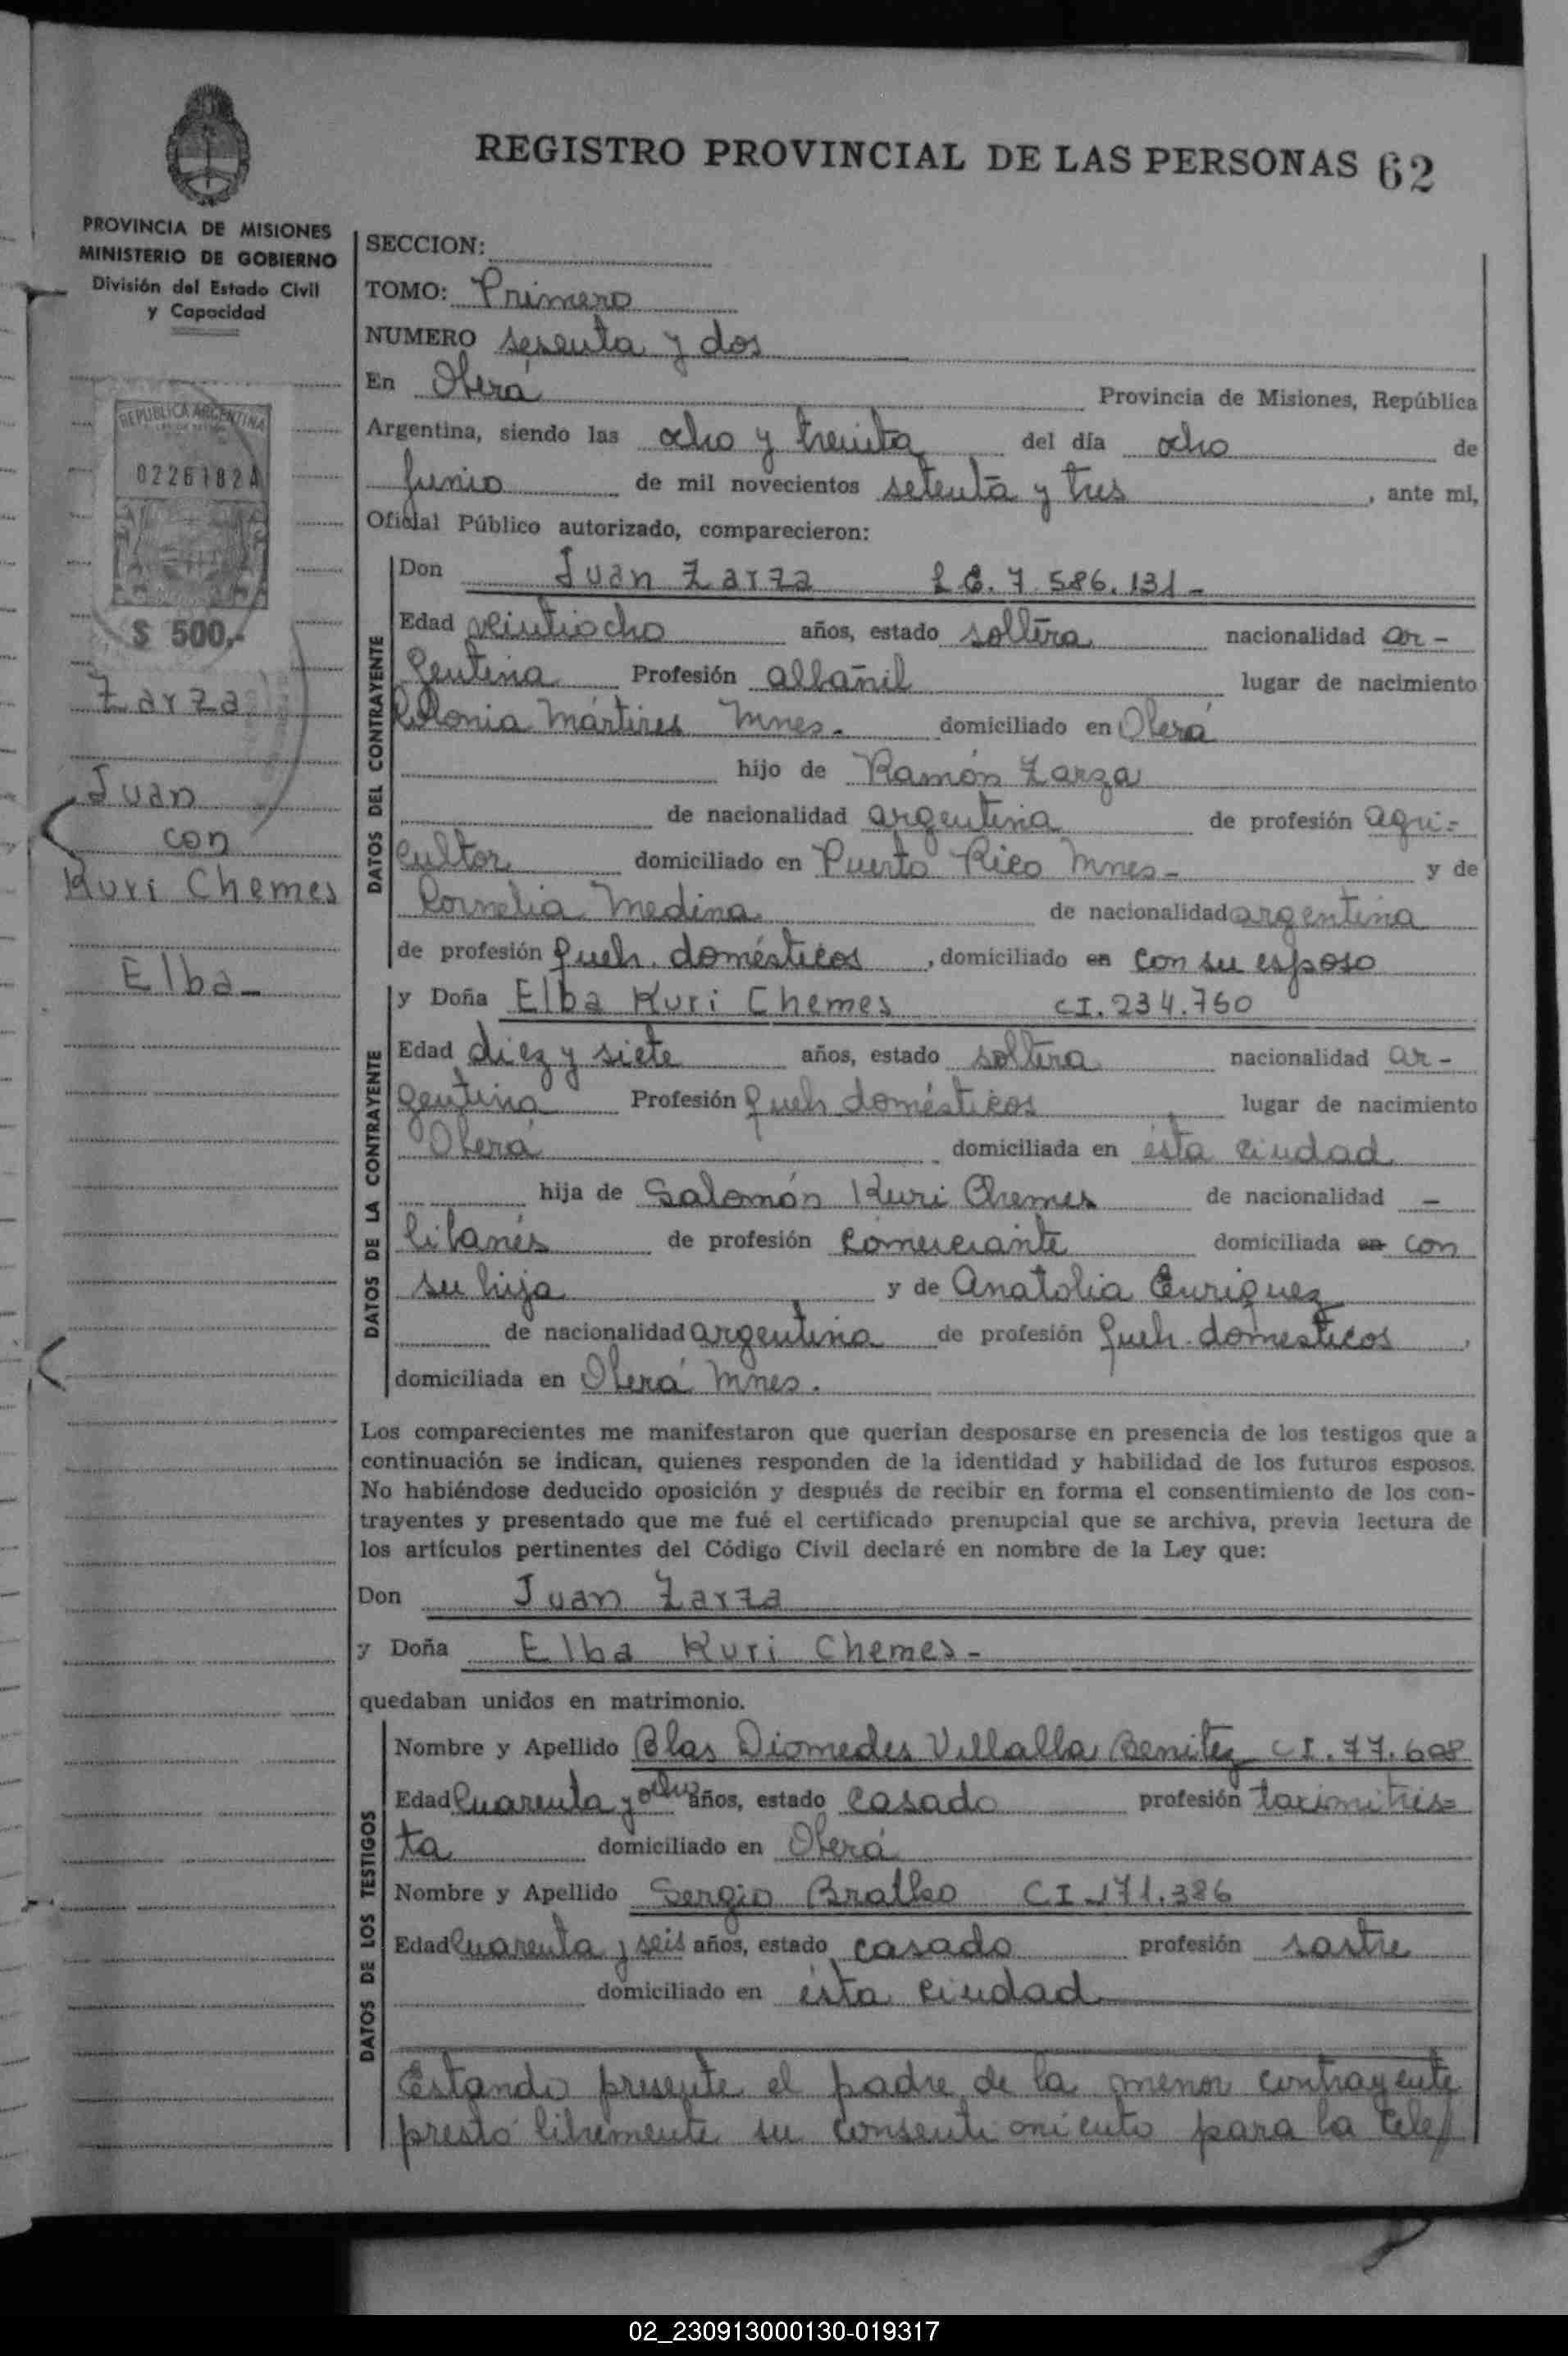 REGISTRO PROVINCIAL DE LAS PERSONAS 62
PROVINCIA DE MISIONES
MINISTERIO DE GOBIERNO
División del Estado Civil
y Capacidad
REPUBLICA ARGENTINA
02261824
$ 500,-
Zarza
Juan
con
Kuri Chemes
Elba-
SECCION:
TOMO: Primero
NUMERO sesenta y dos
En Oberá Provincia de Misiones, República
Argentina, siendo las ocho y treinta del día ocho de
Junio de mil novecientos setenta y tres, ante mi,
Oficial Público autorizado, comparecieron:
DATOS DEL CONTRAYENTE
Don Juan Zarza L.E. 7.586.131-
Edad veintiocho años, estado soltero nacionalidad ar-
gentina Profesión albañil lugar de nacimiento
Colonia Mártires Mnes. domiciliado en Oberá
hijo de Ramón Zarza
de nacionalidad argentina de profesión agri-
cultor domiciliado en Puerto Rico Mnes- y de
Cornelia Medina de nacionalidad argentina
de profesión queh. domésticos, domiciliado en con su esposo
DATOS DE LA CONTRAYENTE
y Doña Elba Kuri Chemes CI. 234.760
Edad diez y siete años, estado soltera nacionalidad ar-
gentina Profesión queh domésticos lugar de nacimiento
Oberá domiciliada en ésta ciudad
hija de Salomón Kuri Chemes de nacionalidad -
libanés de profesión comerciante domiciliada en con
su hija y de Anatolia Enriquez
de nacionalidad argentina de profesión queh. domesticos,
domiciliada en Oberá Mnes.
Los comparecientes me manifestaron que querían desposarse en presencia de los testigos que a
continuación se indican, quienes responden de la identidad y habilidad de los futuros esposos.
No habiéndose deducido oposición y después de recibir en forma el consentimiento de los con-
trayentes y presentado que me fué el certificado prenupcial que se archiva, previa lectura de
los artículos pertinentes del Código Civil declaré en nombre de la Ley que:
Don Juan Zarza
y Doña Elba Kuri Chemes-
quedaban unidos en matrimonio.
DATOS DE LOS TESTIGOS
Nombre y Apellido Blas Diomedes Villalba Benitez CI. 77.608
Edad Cuarenta y ocho años, estado casado profesión taximetris-
ta domiciliado en Oberá
Nombre y Apellido Sergio Bratko CI 171.386
Edad Cuarenta y seis años, estado casado profesión sastre
domiciliado en ésta ciudad
Estando presente el padre de la menor contrayente
prestó libremente su consentimiento para la cele/
02_230913000130-019317